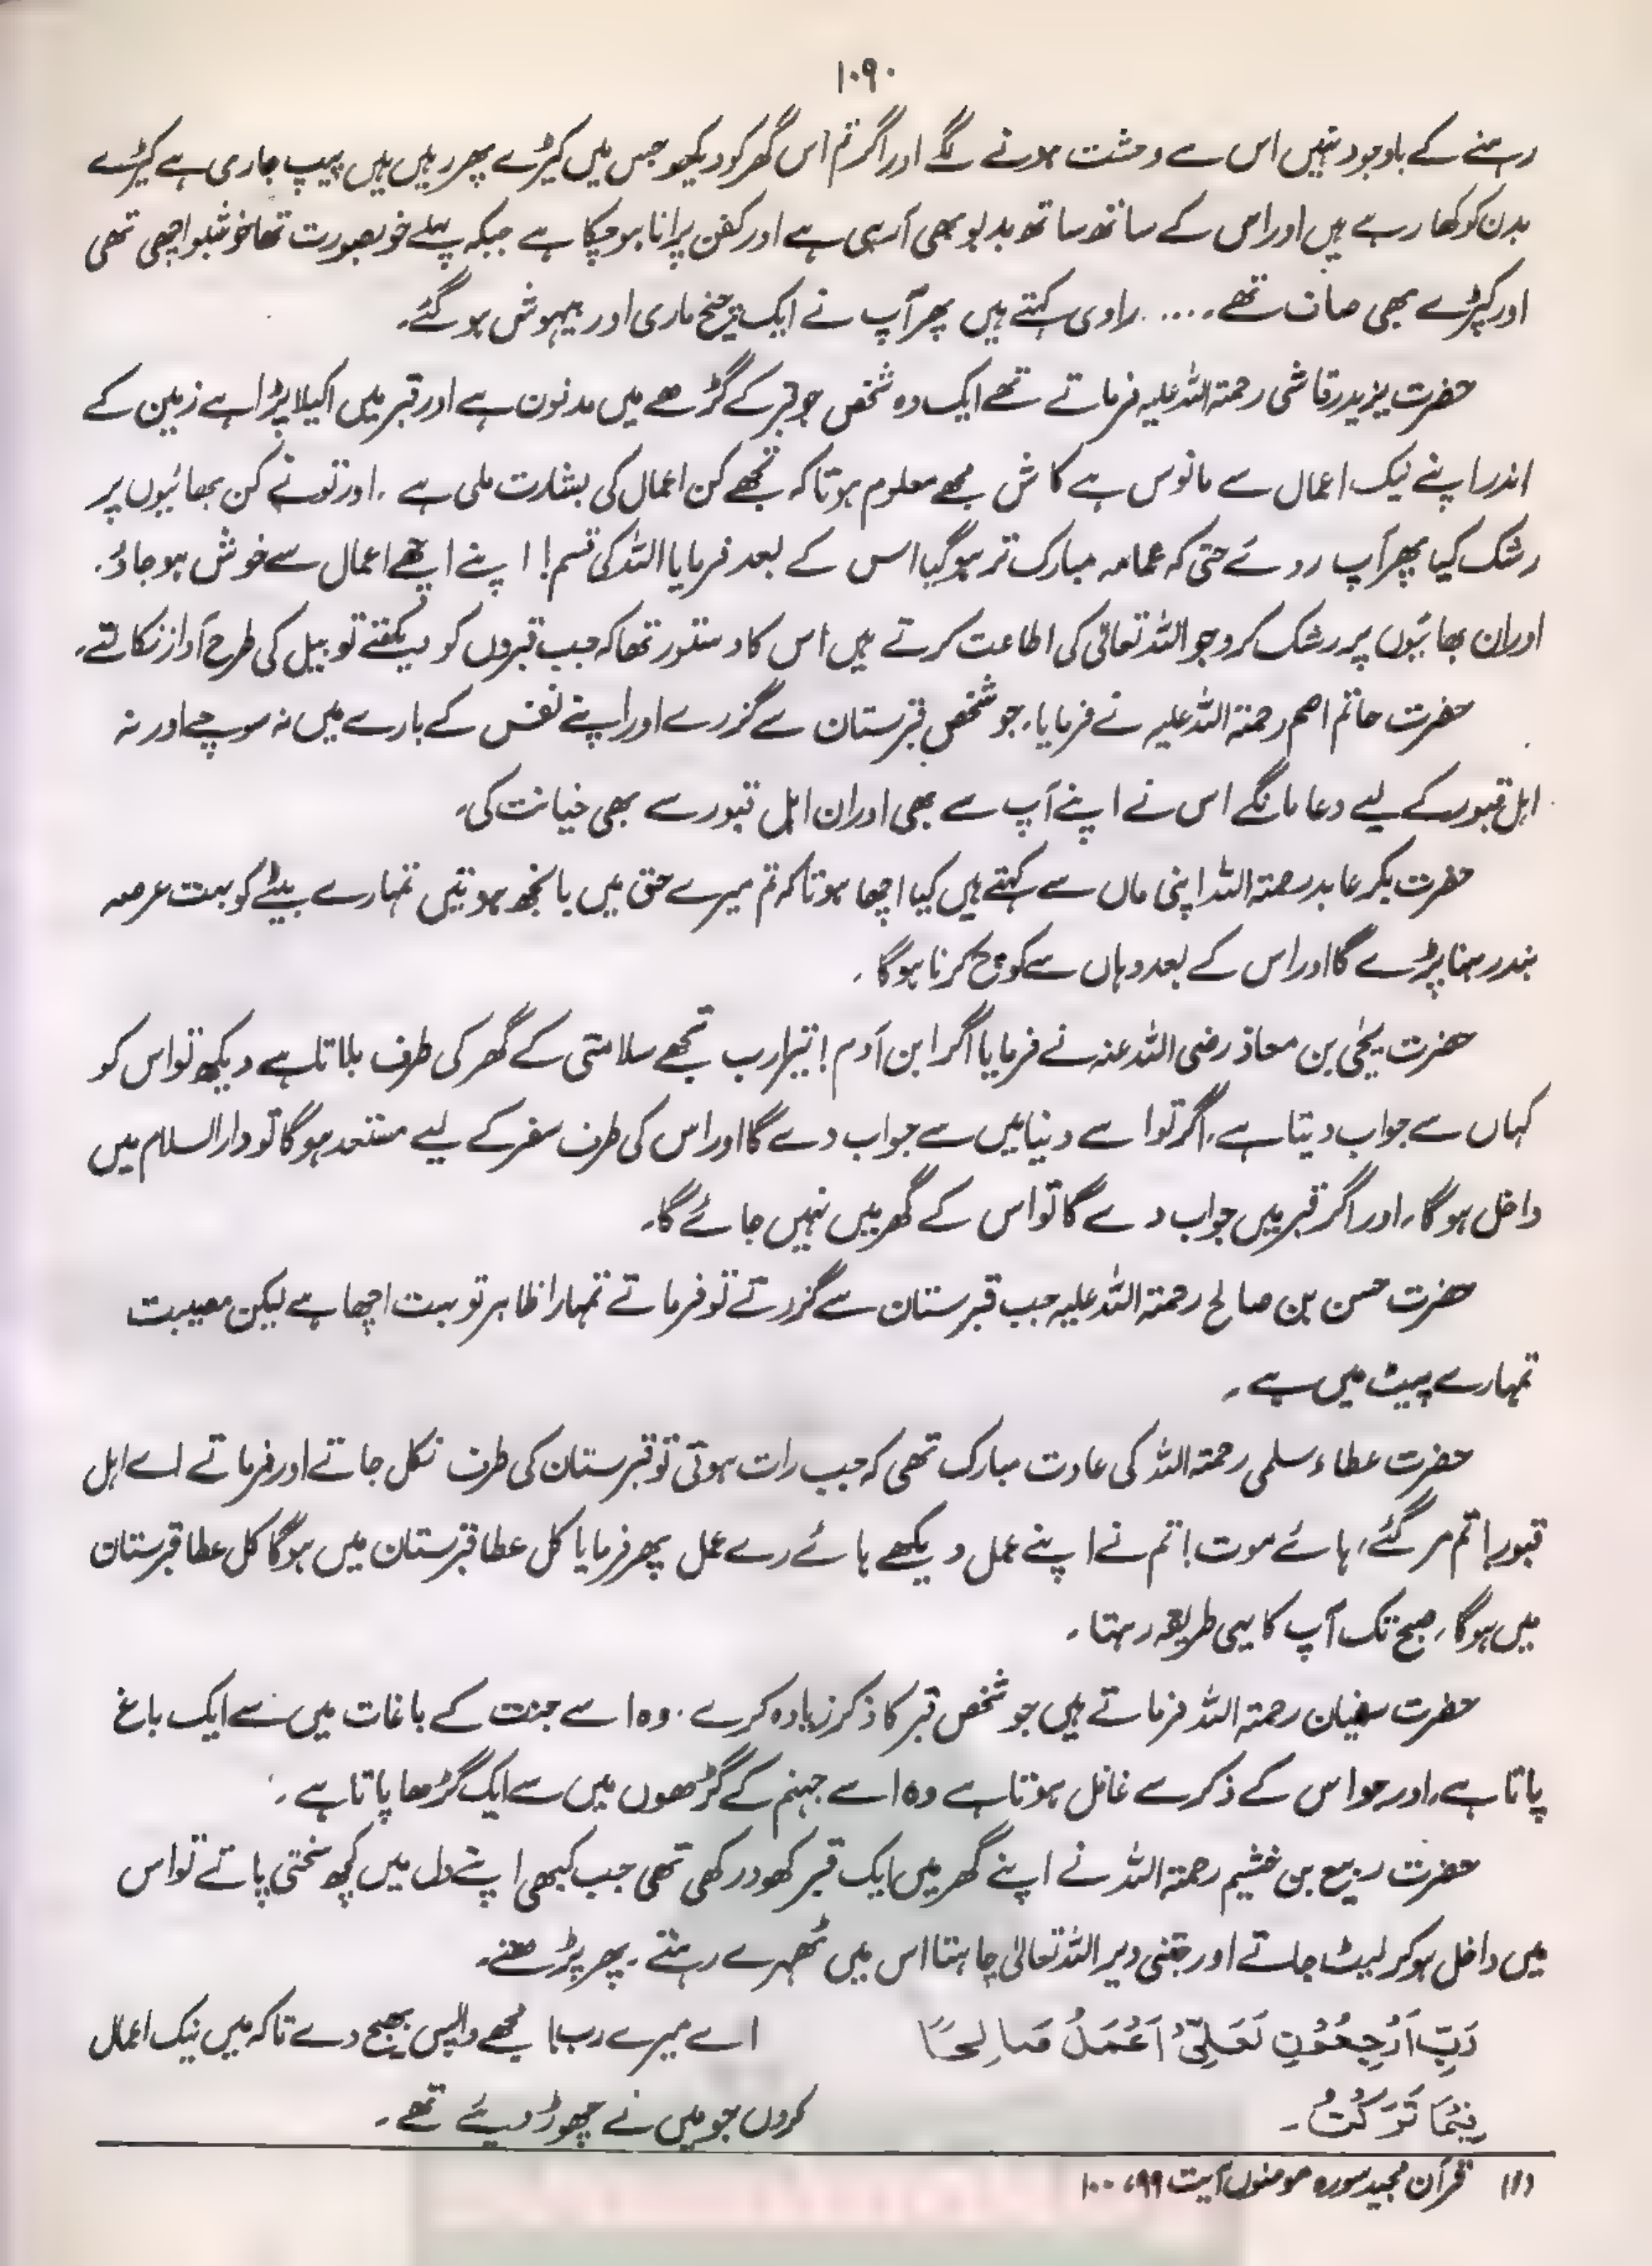 ۱۰۹۰
رہنے کے باوجود تمہیں اس سے وحشت ہونے لگے اور اگر تم اس گھر کو دیکھو جس میں کیڑے پھر رہیں ہیں پیپ جاری ہے کیڑے
بدن کو کھا رہے ہیں اور اس کے ساتھ ساتھ بدبو بھی آرہی ہے اور کفن پرانا ہو چکا ہے جبکہ پہلے خوبصورت تھا خوشبو اچھی تھی
اور کپڑے بھی صاف تھے ..... راوی کہتے ہیں پھر آپ نے ایک چیخ ماری اور بیہوش ہو گئے۔
حضرت یزید رقاشی رحمتہ اللہ علیہ فرماتے تھے ایک وہ شخص جو قبر کے گڑھے میں مدفون ہے اور قبر میں اکیلا پڑا ہے زمین کے
اندر اپنے نیک اعمال سے مانوس ہے کاش مجھے معلوم ہوتا کہ تجھے کن اعمال کی بشارت ملی ہے ۔ اور تونے کن بھائیوں پر
رشک کیا پھر آپ روئے حتی کہ عمامہ مبارک تر ہو گیا اس کے بعد فرمایا اللہ کی قسم! اپنے اچھے اعمال سے خوش ہو جاؤ۔
اور ان بھائیوں پر رشک کرو جو اللہ تعالیٰ کی اطاعت کرتے ہیں اس کا دستور تھا کہ جب قبروں کو دیکھتے تو بیل کی طرح آواز نکالتے۔
حضرت حاتم اصم رحمتہ اللہ علیہ نے فرمایا، جو شخص قبرستان سے گزرے اور اپنے نفس کے بارے میں نہ سوچے اور نہ
اہل قبور کے لیے دعا مانگے اس نے اپنے آپ سے بھی اور ان اہل قبور سے بھی خیانت کی۔
حضرت بکر عابد رحمتہ اللہ اپنی ماں سے کہتے ہیں کیا اچھا ہوتا کہ تم میرے حق میں بانجھ ہوتیں تمہارے بیٹے کو بہت عرصہ
بند رہنا پڑے گا اور اس کے بعد وہاں سے کوچ کرنا ہوگا ۔
حضرت یحیٰی بن معاذ رضی اللہ عنہ نے فرمایا اگر ابن آدم! تیرا رب تجھے سلامتی کے گھر کی طرف بلاتا ہے دیکھ تو اس کو
کہاں سے جواب دیتا ہے، اگر تو اسے دنیا میں سے جواب دے گا اور اس کی طرف سفر کے لیے مستعد ہوگا تو دارالسلام میں
داخل ہوگا، اور اگر قبر میں جواب دے گا تو اس کے گھر میں نہیں جائے گا۔
حضرت حسن بن صالح رحمتہ اللہ علیہ جب قبرستان سے گزرتے تو فرماتے تمہارا ظاہر تو بہت اچھا ہے لیکن مصیبت
تمہارے پیٹ میں ہے ۔
حضرت عطاء سلمی رحمتہ اللہ کی عادت مبارک تھی کہ جب رات ہوتی تو قبرستان کی طرف نکل جاتے اور فرماتے اے اہل
قبور! تم مر گئے، ہائے موت! تم نے اپنے عمل دیکھے ہائے رے عمل پھر فرمایا کل عطا قبرستان میں ہوگا کل عطا قبرستان
میں ہوگا، صبح تک آپ کا یہی طریقہ رہتا ۔
حضرت سفیان رحمتہ اللہ فرماتے ہیں جو شخص قبر کا ذکر زیادہ کرے ۔ وہ اسے جنت کے باغات میں سے ایک باغ
پاتا ہے، اور جو اس کے ذکر سے غافل ہوتا ہے وہ اسے جہنم کے گڑھوں میں سے ایک گڑھا پاتا ہے ۔
حضرت ربیع بن خثیم رحمتہ اللہ نے اپنے گھر میں ایک قبر کھود رکھی تھی جب کبھی اپنے دل میں کچھ سختی پاتے تو اس
میں داخل ہو کر لیٹ جاتے اور جتنی دیر اللہ تعالیٰ چاہتا اس میں ٹھہرے رہتے ۔ پھر پڑھتے۔
رَبِّ ارْجِعُوْنِ لَعَلِّیْ اَعْمَلُ صَالِحًا
فِیْمَا تَرَکْتُ ۔
اے میرے رب! مجھے واپس بھیج دے تاکہ میں نیک اعمال
کروں جو میں نے چھوڑ دیئے تھے ۔
(۱) قرآن مجید سورہ مومنون آیت ۹۹، ۱۰۰